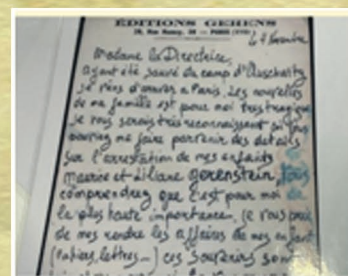 EDITIONS GERENS
28, Rue , 28 — PARIS (XVIe)
le 4 Novembre
Madame la Directrice,
ayant été sauvé du camp d'Auschwitz
je viens d'arriver a Paris. Les nouvelles
de ma famille est pour moi très tragique
je vous serais très reconnaissant si vous
pouviez me faire parvenir des details
sur l'arrestation de mes enfants
Maurice et Liliane Gerenstein, vous
comprendrez que c'est pour moi
la plus haute importance, je vous prie
de me rendre les affaires de mes enfant
(Papiers, lettres...) ces souvenirs sont